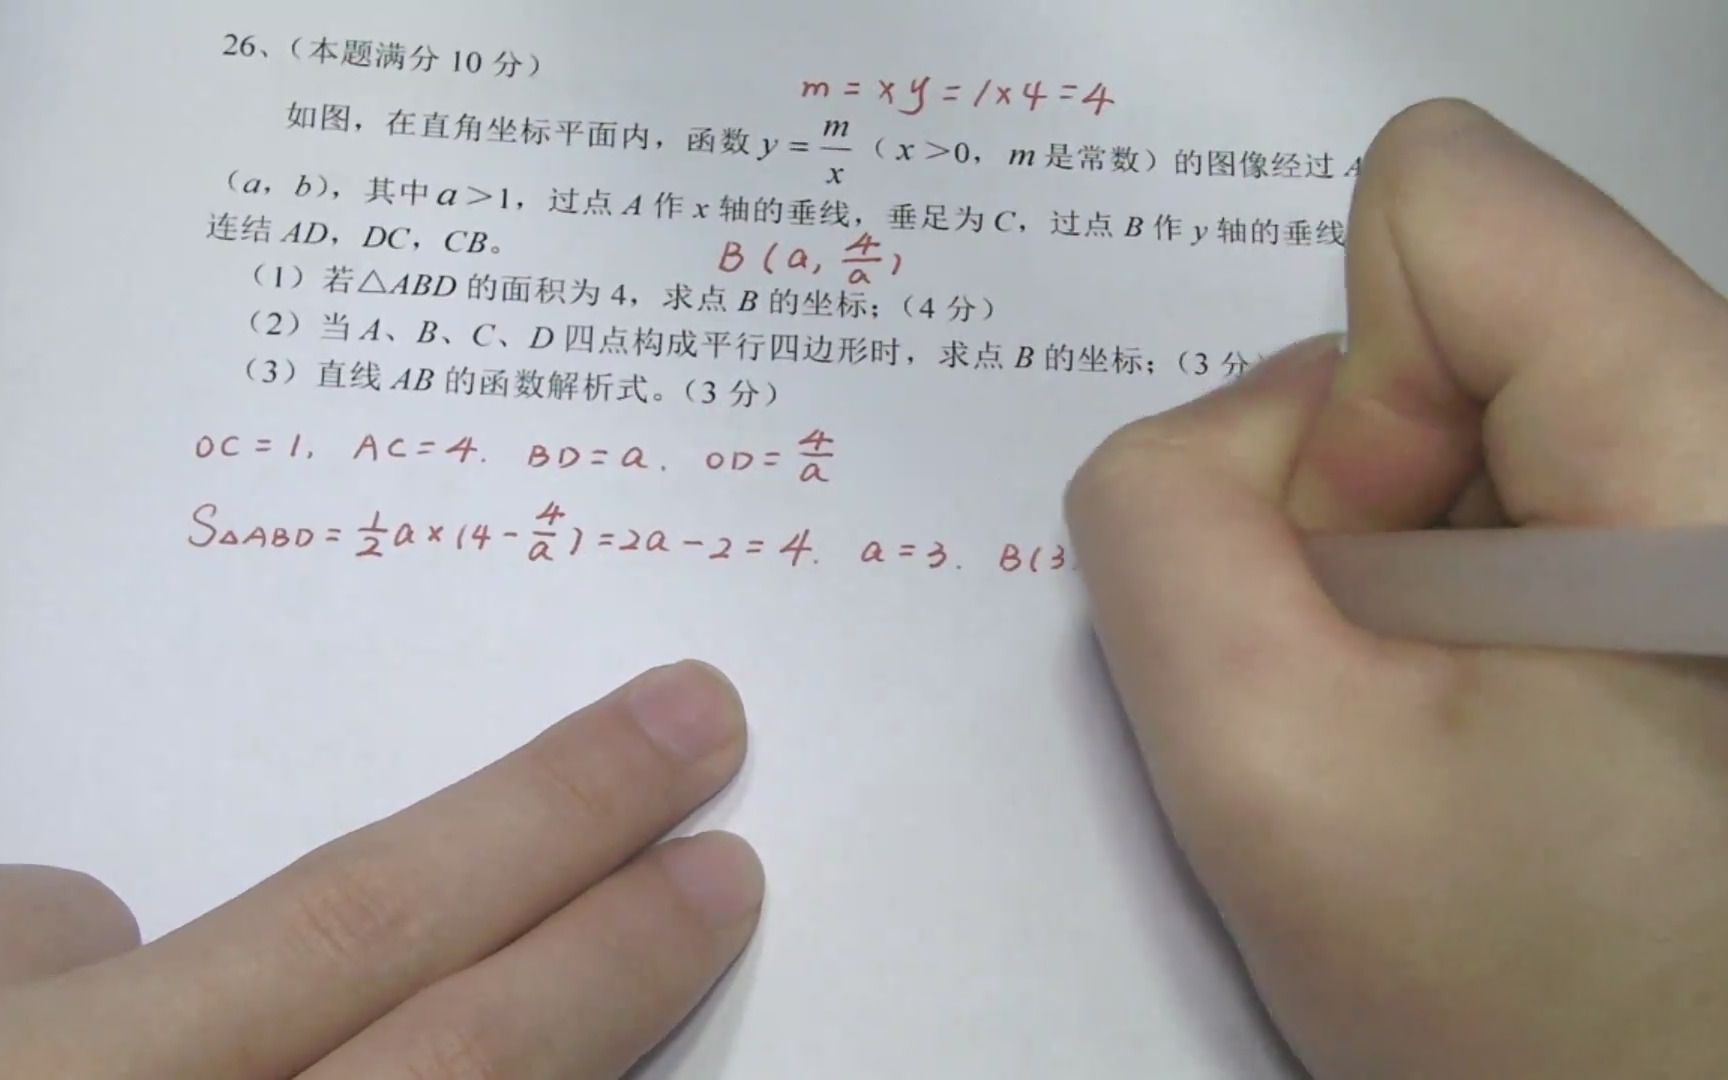 26、（本题满分 10 分）
m = xy = 1×4 = 4
如图，在直角坐标平面内，函数 y = m/x （ x >0， m 是常数）的图像经过 A
（a，b），其中 a >1，过点 A 作 x 轴的垂线，垂足为 C，过点 B 作 y 轴的垂线
连结 AD，DC，CB。
B ( a, 4/a )
（1）若△ABD 的面积为 4，求点 B 的坐标；（4 分）
（2）当 A、B、C、D 四点构成平行四边形时，求点 B 的坐标；（3 分
（3）直线 AB 的函数解析式。（3 分）
OC = 1. AC = 4. BD = a. OD = 4/a
S△ABD = 1/2 a × (4 - 4/a) = 2a - 2 = 4. a = 3. B(3